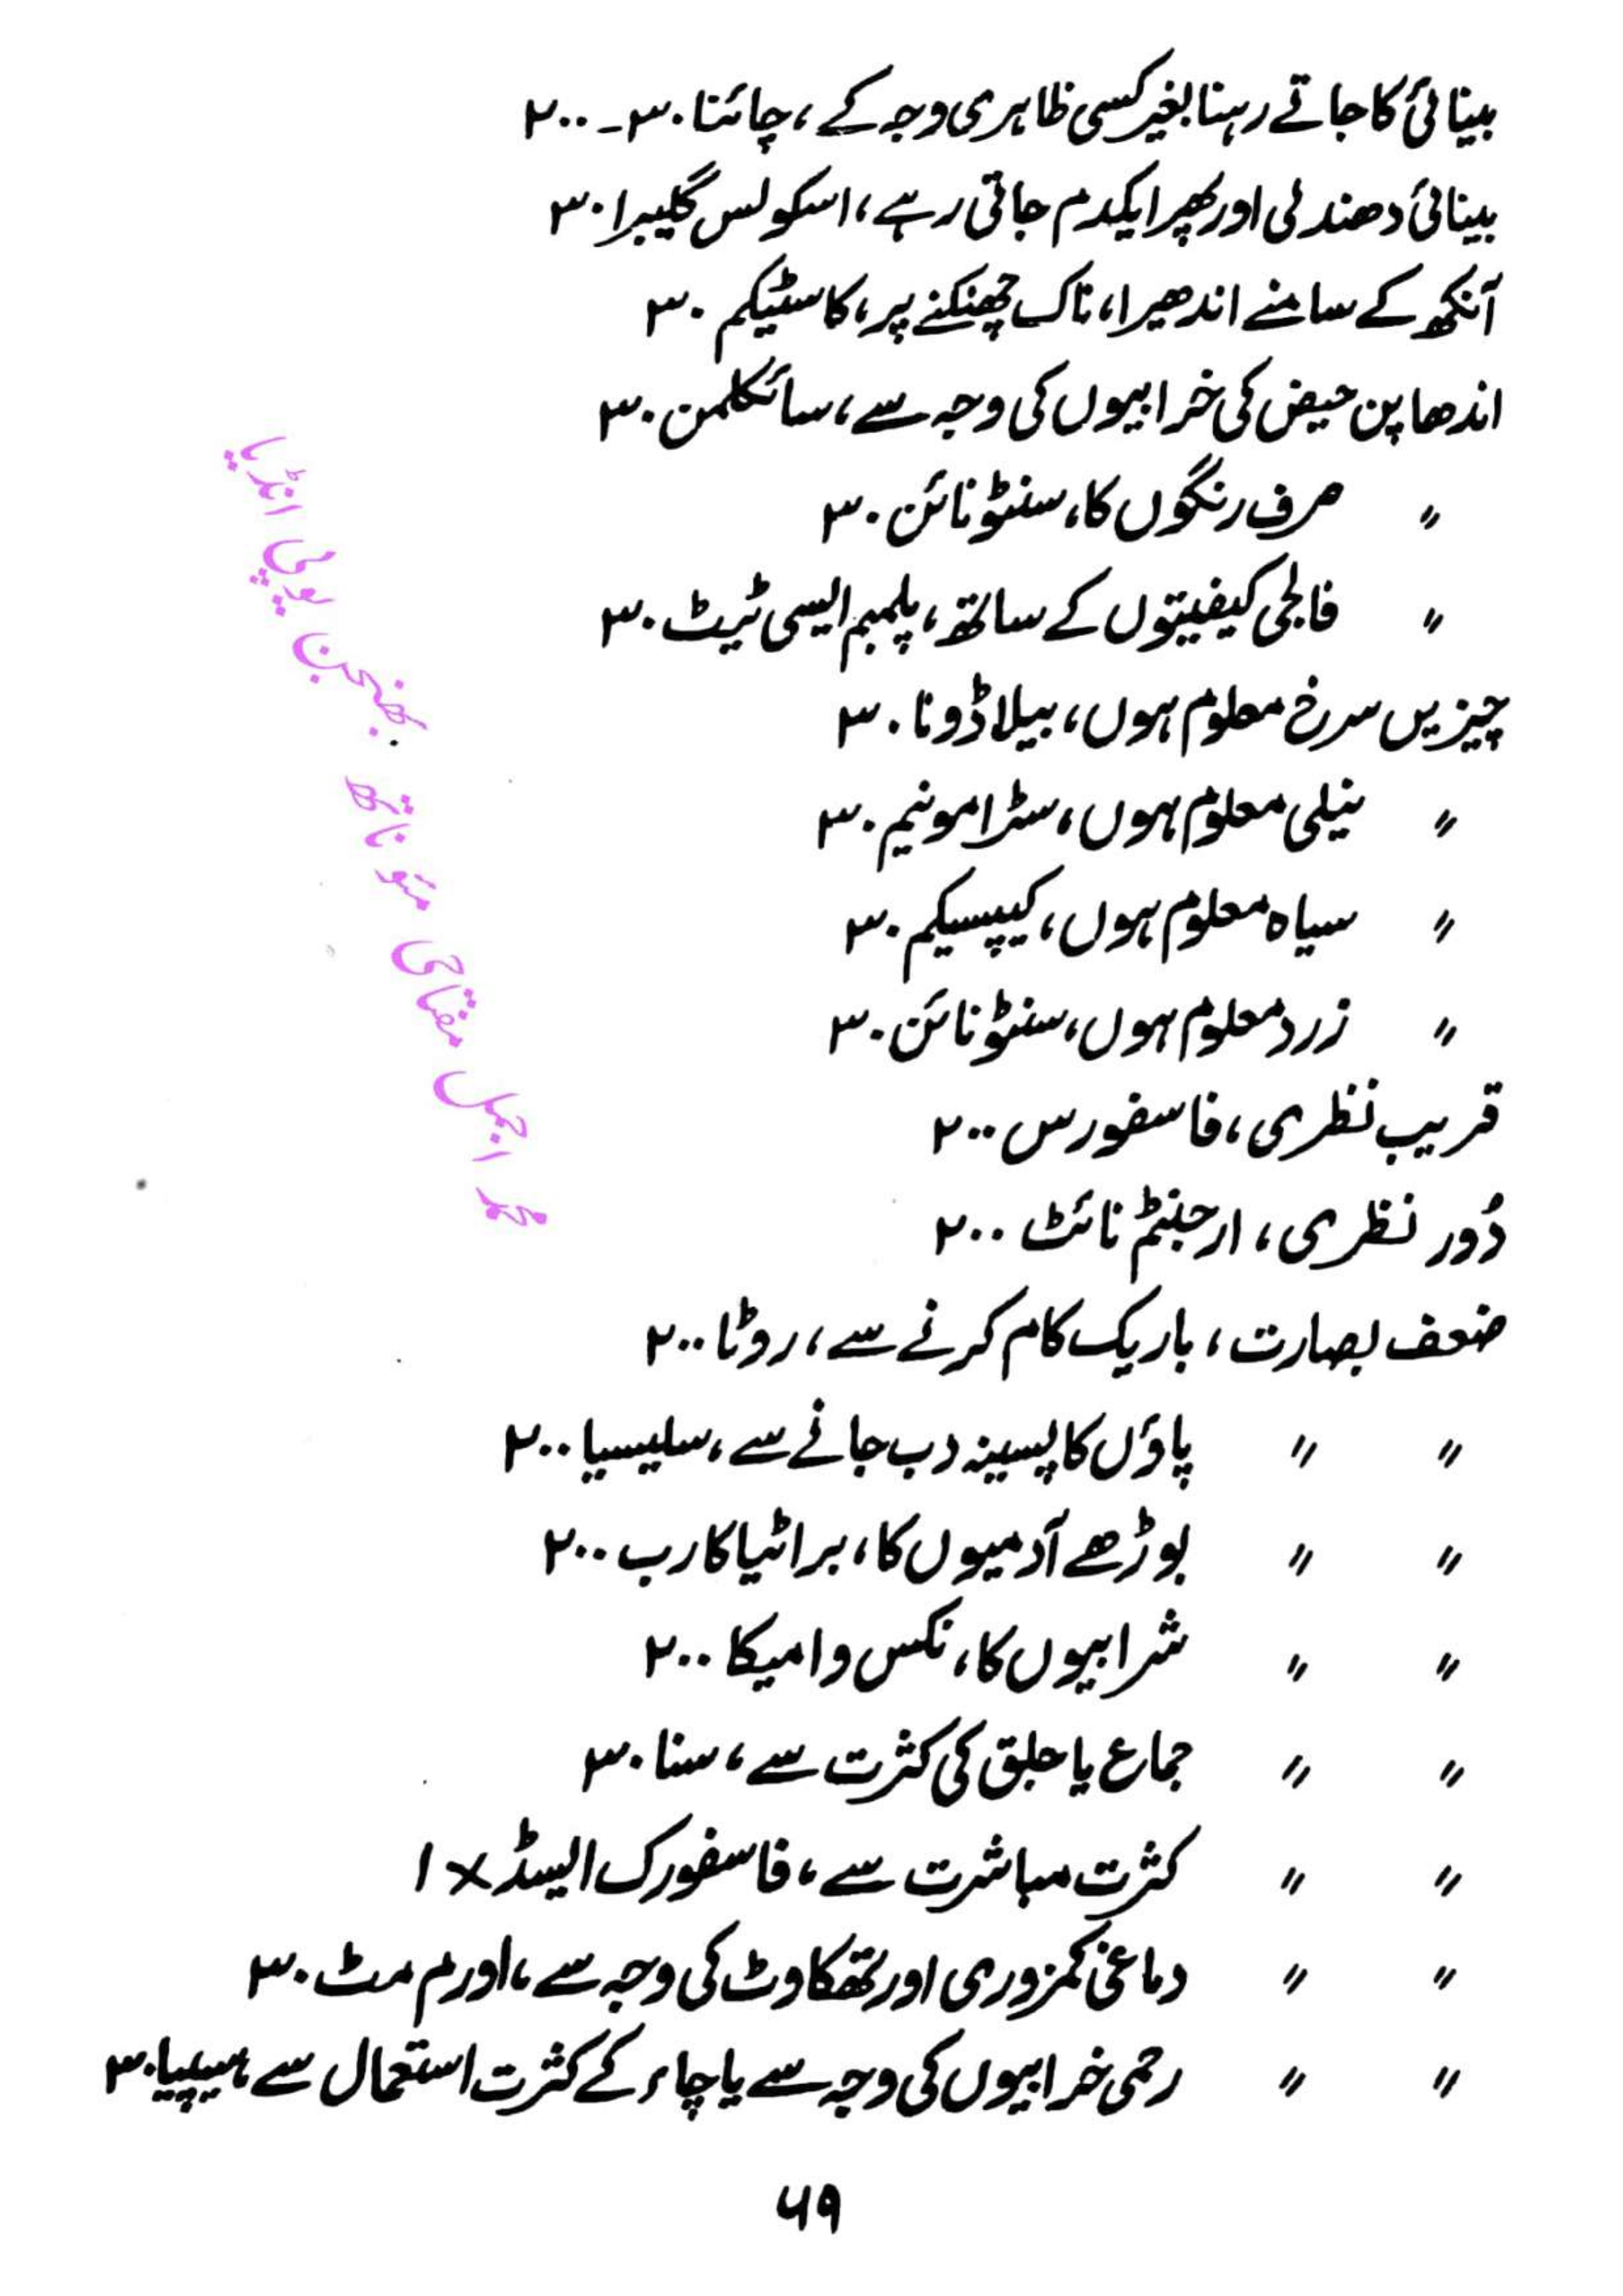 بینائی کا جاتے رہنا بغیر کسی ظاہری وجہ کے، چائنا ۳۰ ـ ۲۰۰
بینائی دھندلی اور پھر ایکدم جاتی رہے، اسکولس گلیبرا ۳۰
آنکھ کے سامنے اندھیرا، ناک چھنکنے پر، کاسٹیکم ۳۰
اندھا پن حیض کی خرابیوں کی وجہ سے، سائکلمن ۳۰
〃 صرف رنگوں کا، سنٹونائن ۳۰
〃 فالجی کیفیتوں کے ساتھ، پلمبم ایسی ٹیٹ ۳۰
چیزیں سرخ معلوم ہوں، بیلاڈونا ۳۰
〃 نیلی معلوم ہوں، سٹرامونیم ۳۰
〃 سیاہ معلوم ہوں، کیپسیکم ۳۰
〃 زرد معلوم ہوں، سنٹونائن ۳۰
قریب نظری، فاسفورس ۲۰۰
دُور نظری، ارجنٹم نائٹ ۲۰۰
ضعف بصارت، باریک کام کرنے سے، روٹا ۲۰۰
〃 〃 پاؤں کا پسینہ دب جانے سے، سلیسیا ۲۰۰
〃 〃 بوڑھے آدمیوں کا، برائٹا کارب ۲۰۰
〃 〃 شرابیوں کا، نکس وامیکا ۲۰۰
〃 〃 جماع یا جلق کی کثرت سے، سنا ۳۰
〃 〃 کثرت مباشرت سے، فاسفورک ایسڈ ×۱
〃 〃 دماغی کمزوری اور تھکاوٹ کی وجہ سے، اورم مٹ ۳۰
〃 〃 رحمی خرابیوں کی وجہ سے یا چاء کے کثرت استعمال سے ہسیپیا ۳۰
۶۹
محمد اجمل مفتاحی مئو ناتھ بھنجن یوپی انڈیا